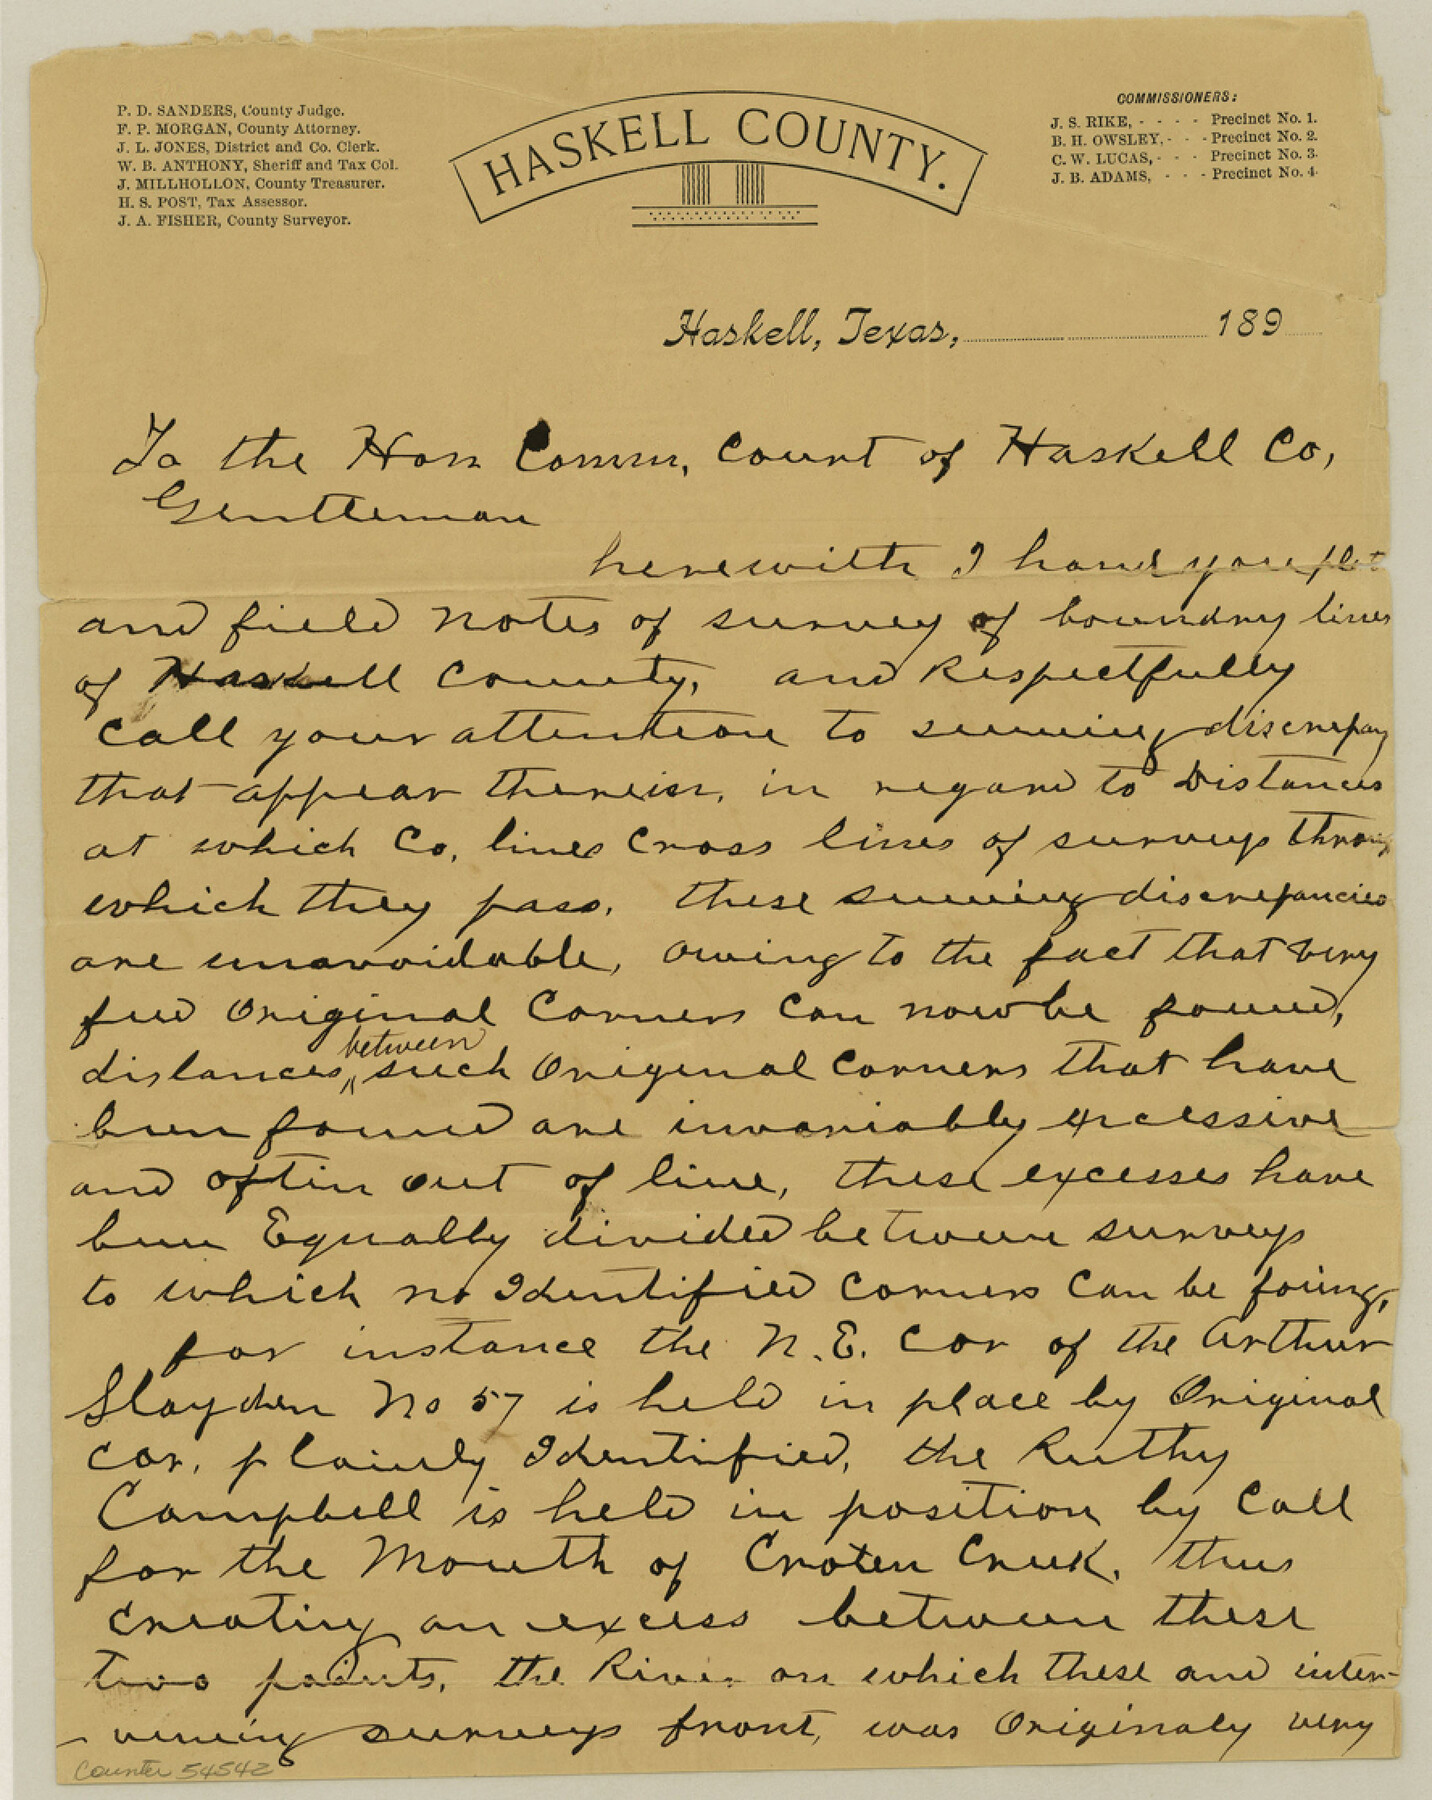 P. D. SANDERS, County Judge.
F. P. MORGAN, County Attorney.
J. L. JONES, District and Co. Clerk.
W. B. ANTHONY, Sheriff and Tax Col.
J. MILLHOLLON, County Treasurer.
H. S. POST, Tax Assessor.
J. A. FISHER, County Surveyor.
HASKELL COUNTY.
COMMISSIONERS:
J. S. RIKE, - - - - Precinct No. 1.
B. H. OWSLEY, - - - Precinct No. 2.
C. W. LUCAS, - - - Precinct No. 3.
J. B. ADAMS, - - - Precinct No. 4.
Haskell, Texas, 189
To the Hon Comm, Court of Haskell Co,
Gentleman
herewith I hand you plat
and field notes of survey of boundry lines
of Haskell County, and Respectfully
call your attention to seeming discrepancy
that appear therein, in regard to Distances
at which Co, lines cross lines of surveys throug
which they pass. these seeming discrepancies
are unavoidable, owing to the fact that very
few Original Corners can now be found,
distances between such Original corners that have
been found are invariably excessive
and often out of line, these excesses have
been Equally divided between surveys
to which no Identified corners can be foung,
for instance the N.E. Cor of the Arthur
Slayden No 57 is held in place by Original
cor, plainly Identified, the Ruthy
Campbell is held in position by call
for the Mouth of Croten Creek, thus
creating an excess between these
two points, the River on which these and inter-
-vening surveys front, was Originaly very
Counter 54542